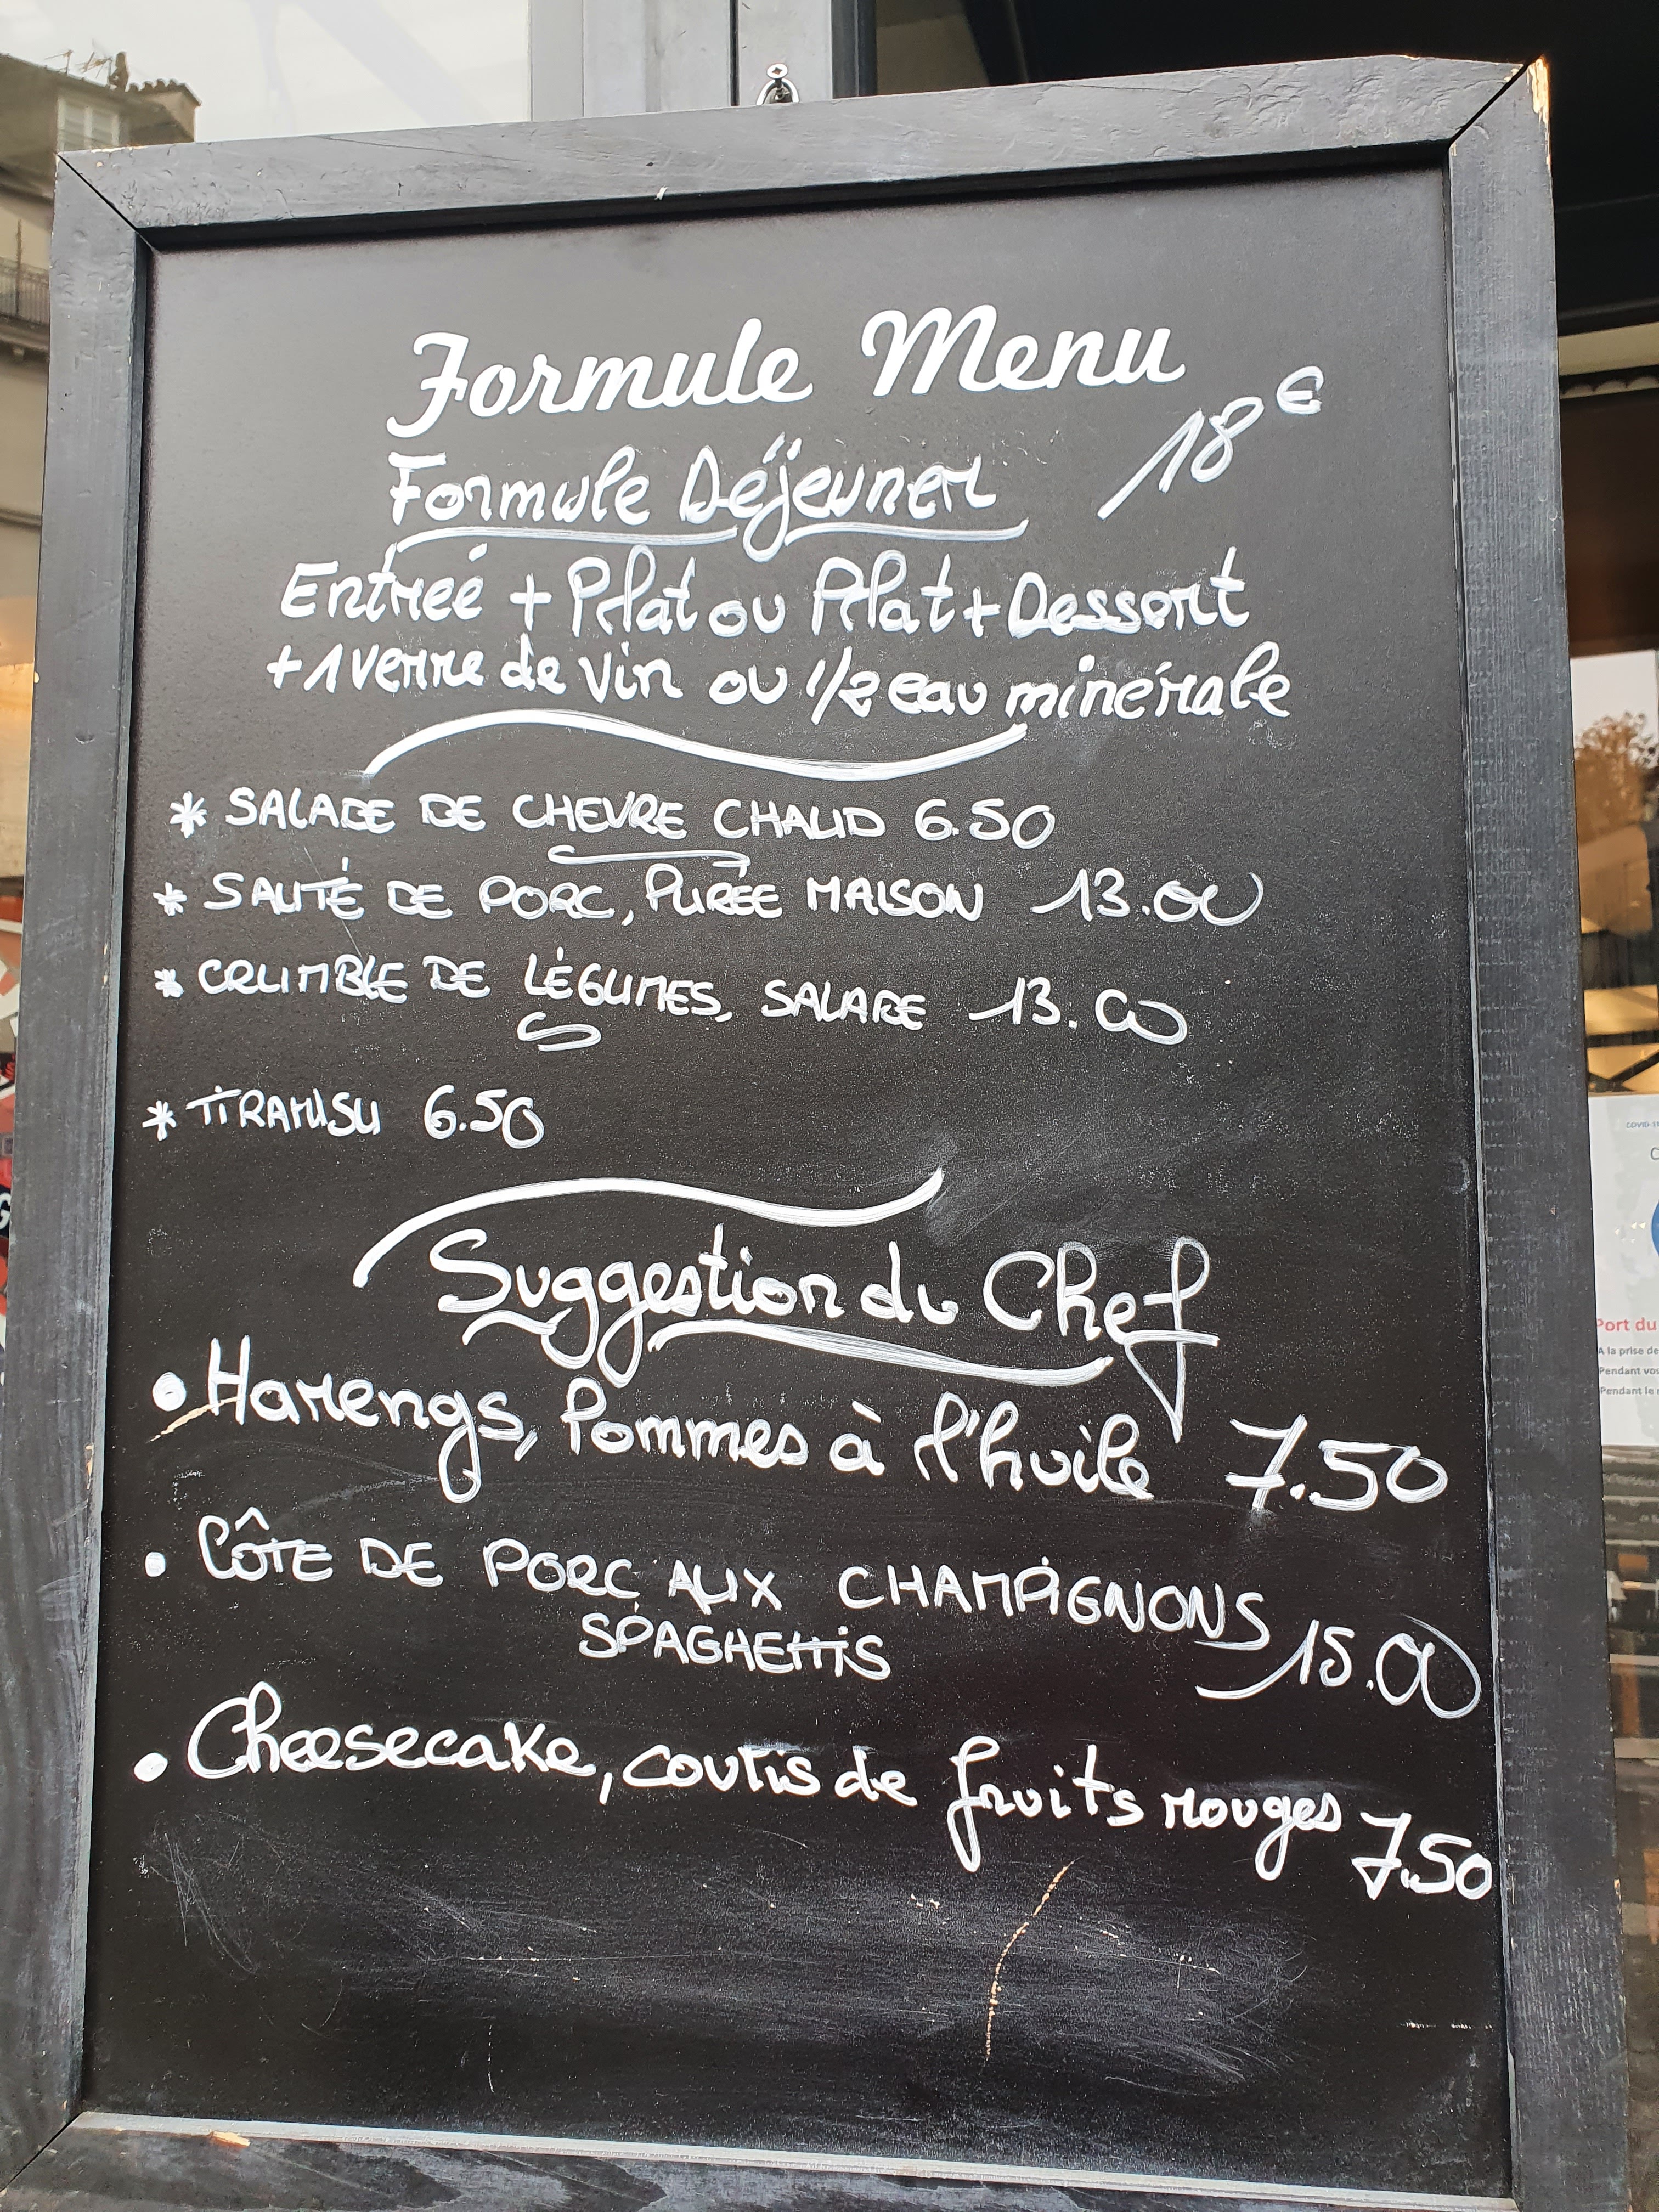 Formule Menu
Formule Déjeuner 18€
Entreé + Plat ou Plat + Dessert
+ 1 verre de vin ou 1/2 eau minérale
* SALADE DE CHEVRE CHAUD 6.50
* SAUTÉ DE PORC, PURÉE MAISON 13.00
* CRUMBLE DE LÉGUMES, SALADE 13.00
* TIRAMISU 6.50
Suggestion du Chef
• Harengs, Pommes à l'huile 7.50
• CÔTE DE PORC AUX CHAMPIGNONS
SPAGHETTIS 15.00
• Cheesecake, coulis de fruits rouges 7.50
COVID-1
Port du
A la prise de
Pendant vos
Pendant le